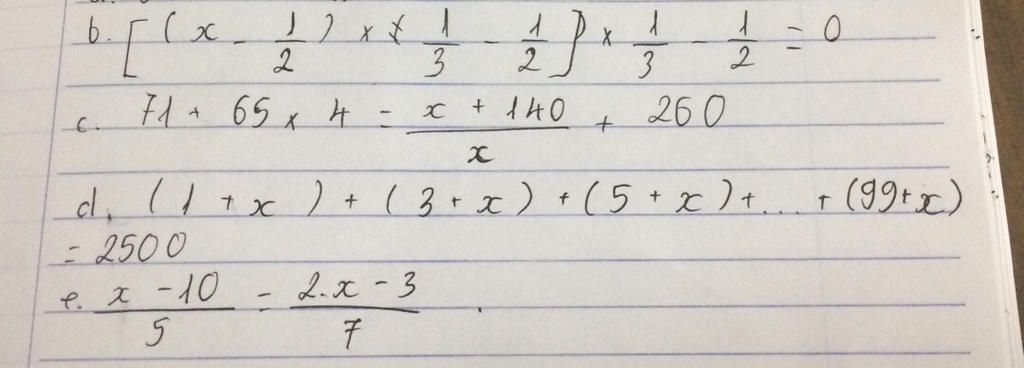 b. [ (x - 1/2) × 1/3 - 1/2 ] × 1/3 - 1/2 = 0
c. 71 + 65 × 4 = (x + 140)/x + 260
d. (1 + x) + (3 + x) + (5 + x) + ... + (99 + x)
= 2500
e. (x - 10)/5 = (2.x - 3)/7 .